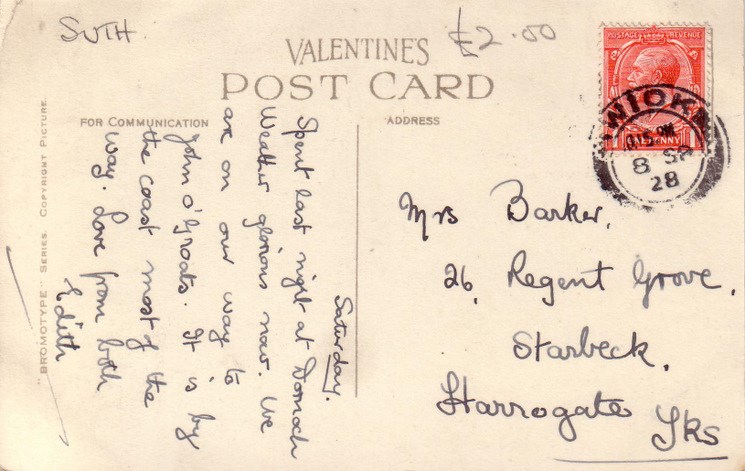 SUTH.
£2.00
VALENTINE'S
POST CARD
FOR COMMUNICATION
ADDRESS
"BROMOTYPE" SERIES. COPYRIGHT PICTURE.
Saturday.
Spent last night at Dornoch
Weather glorious now. We
are on our way to
John o'Groats. It is by
the coast most of the
way. Love from both
Edith
POSTAGE REVENUE
WICK
6.15 PM
8 SP
28
Mrs Barker,
26, Regent Grove,
Starbeck,
Harrogate
Yks